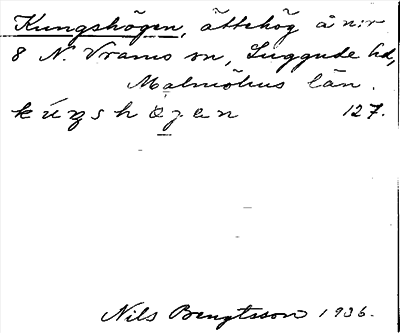 Kungshögen, ättehög å n:r
8 N. Vrams sn, Luggude hd,
Malmöhus län.
kúŋshöȥen 127.
Nils Bengtsson 1936.